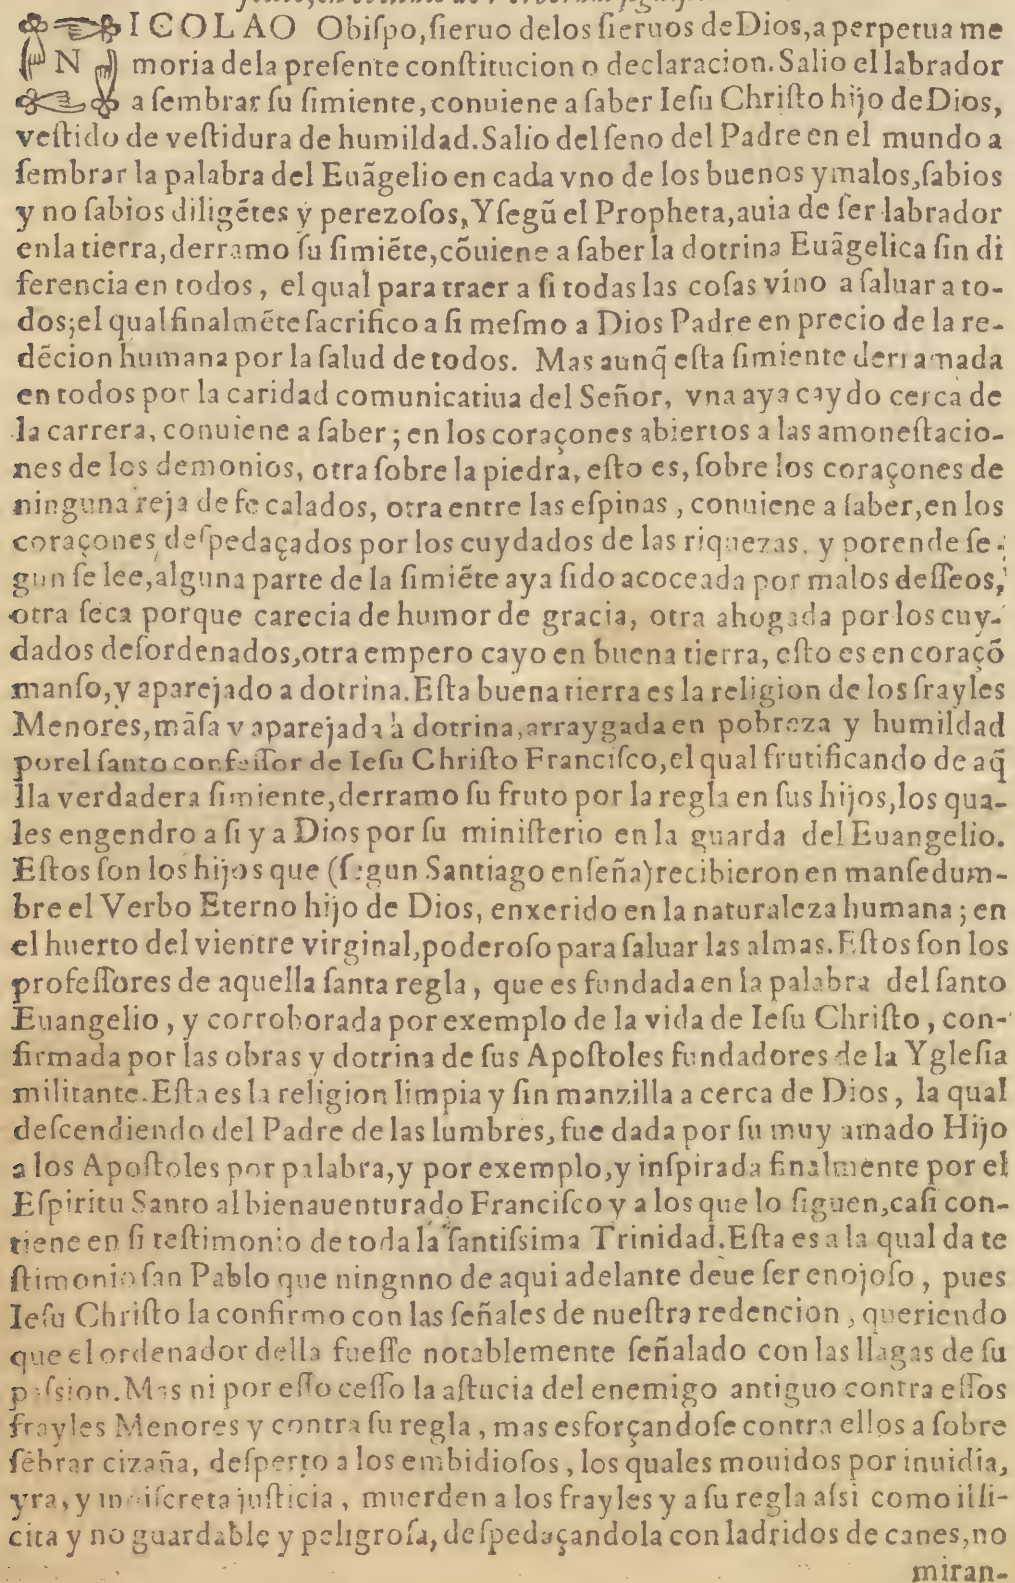 NICOLAO Obiſpo, ſieruo delos ſieruos de Dios, a perpetua me
moria dela preſente conſtitucion o declaracion. Salio el labrador
a ſembrar ſu ſimiente, conuiene a ſaber Ieſu Chriſto hijo de Dios,
veſtido de veſtidura de humildad. Salio del ſeno del Padre en el mundo a
ſembrar la palabra del Euãgelio en cada vno de los buenos y malos, ſabios
y no ſabios diligẽtes y perezoſos, Y ſegũ el Propheta, auia de ſer labrador
enla tierra, derramo ſu ſimiẽte, cõuiene a ſaber la dotrina Euãgelica ſin di
ferencia en todos, el qual para traer a ſi todas las coſas vino a ſaluar a to-
dos; el qual finalmẽte ſacrifico a ſi meſmo a Dios Padre en precio de la re-
dẽcion humana por la ſalud de todos. Mas aunq̃ eſta ſimiente derramada
en todos por la caridad comunicatiua del Señor, vna aya caydo cerca de
la carrera, conuiene a ſaber; en los coraçones abiertos a las amoneſtacio-
nes de los demonios, otra ſobre la piedra, eſto es, ſobre los coraçones de
ninguna reja de fe calados, otra entre las eſpinas, conuiene a ſaber, en los
coraçones deſpedaçados por los cuydados de las riquezas, y porende ſe-
gun ſe lee, alguna parte de la ſimiẽte aya ſido acoceada por malos deſſeos,
otra ſeca porque carecia de humor de gracia, otra ahogada por los cuy-
dados deſordenados, otra empero cayo en buena tierra, eſto es en coraçõ
manſo, y aparejado a dotrina. Eſta buena tierra es la religion de los frayles
Menores, mãſa y aparejada à dotrina, arraygada en pobreza y humildad
porel ſanto confeſſor de Ieſu Chriſto Franciſco, el qual frutificando de aq̃
lla verdadera ſimiente, derramo ſu fruto por la regla en ſus hijos, los qua-
les engendro a ſi y a Dios por ſu miniſterio en la guarda del Euangelio.
Eſtos ſon los hijos que (ſegun Santiago enſeña) recibieron en manſedum-
bre el Verbo Eterno hijo de Dios, enxerido en la naturaleza humana; en
el huerto del vientre virginal, poderoſo para ſaluar las almas. Eſtos ſon los
profeſſores de aquella ſanta regla, que es fundada en la palabra del ſanto
Euangelio, y corroborada por exemplo de la vida de Ieſu Chriſto, con-
firmada por las obras y dotrina de ſus Apoſtoles fundadores de la Ygleſia
militante. Eſta es la religion limpia y ſin manzilla a cerca de Dios, la qual
deſcendiendo del Padre de las lumbres, fue dada por ſu muy amado Hijo
a los Apoſtoles por palabra, y por exemplo, y inſpirada finalmente por el
Eſpiritu Santo al bienauenturado Franciſco y a los que lo ſiguen, caſi con-
tiene en ſi teſtimonio de toda la ſantiſsima Trinidad. Eſta es a la qual da te
ſtimonio ſan Pablo que ningnno de aqui adelante deue ſer enojoſo, pues
Ieſu Chriſto la confirmo con las ſeñales de nueſtra redencion, queriendo
que el ordenador della fueſſe notablemente ſeñalado con las llagas de ſu
paſsion. Mas ni por eſſo ceſſo la aſtucia del enemigo antiguo contra eſſos
frayles Menores y contra ſu regla, mas esforçandoſe contra ellos a ſobre
ſẽbrar cizaña, deſperto a los embidioſos, los quales mouidos por inuidia,
yra, y indiſcreta juſticia, muerden a los frayles y a ſu regla aſsi como illi-
cita y no guardable y peligroſa, deſpedaçandola con ladridos de canes, no
miran-